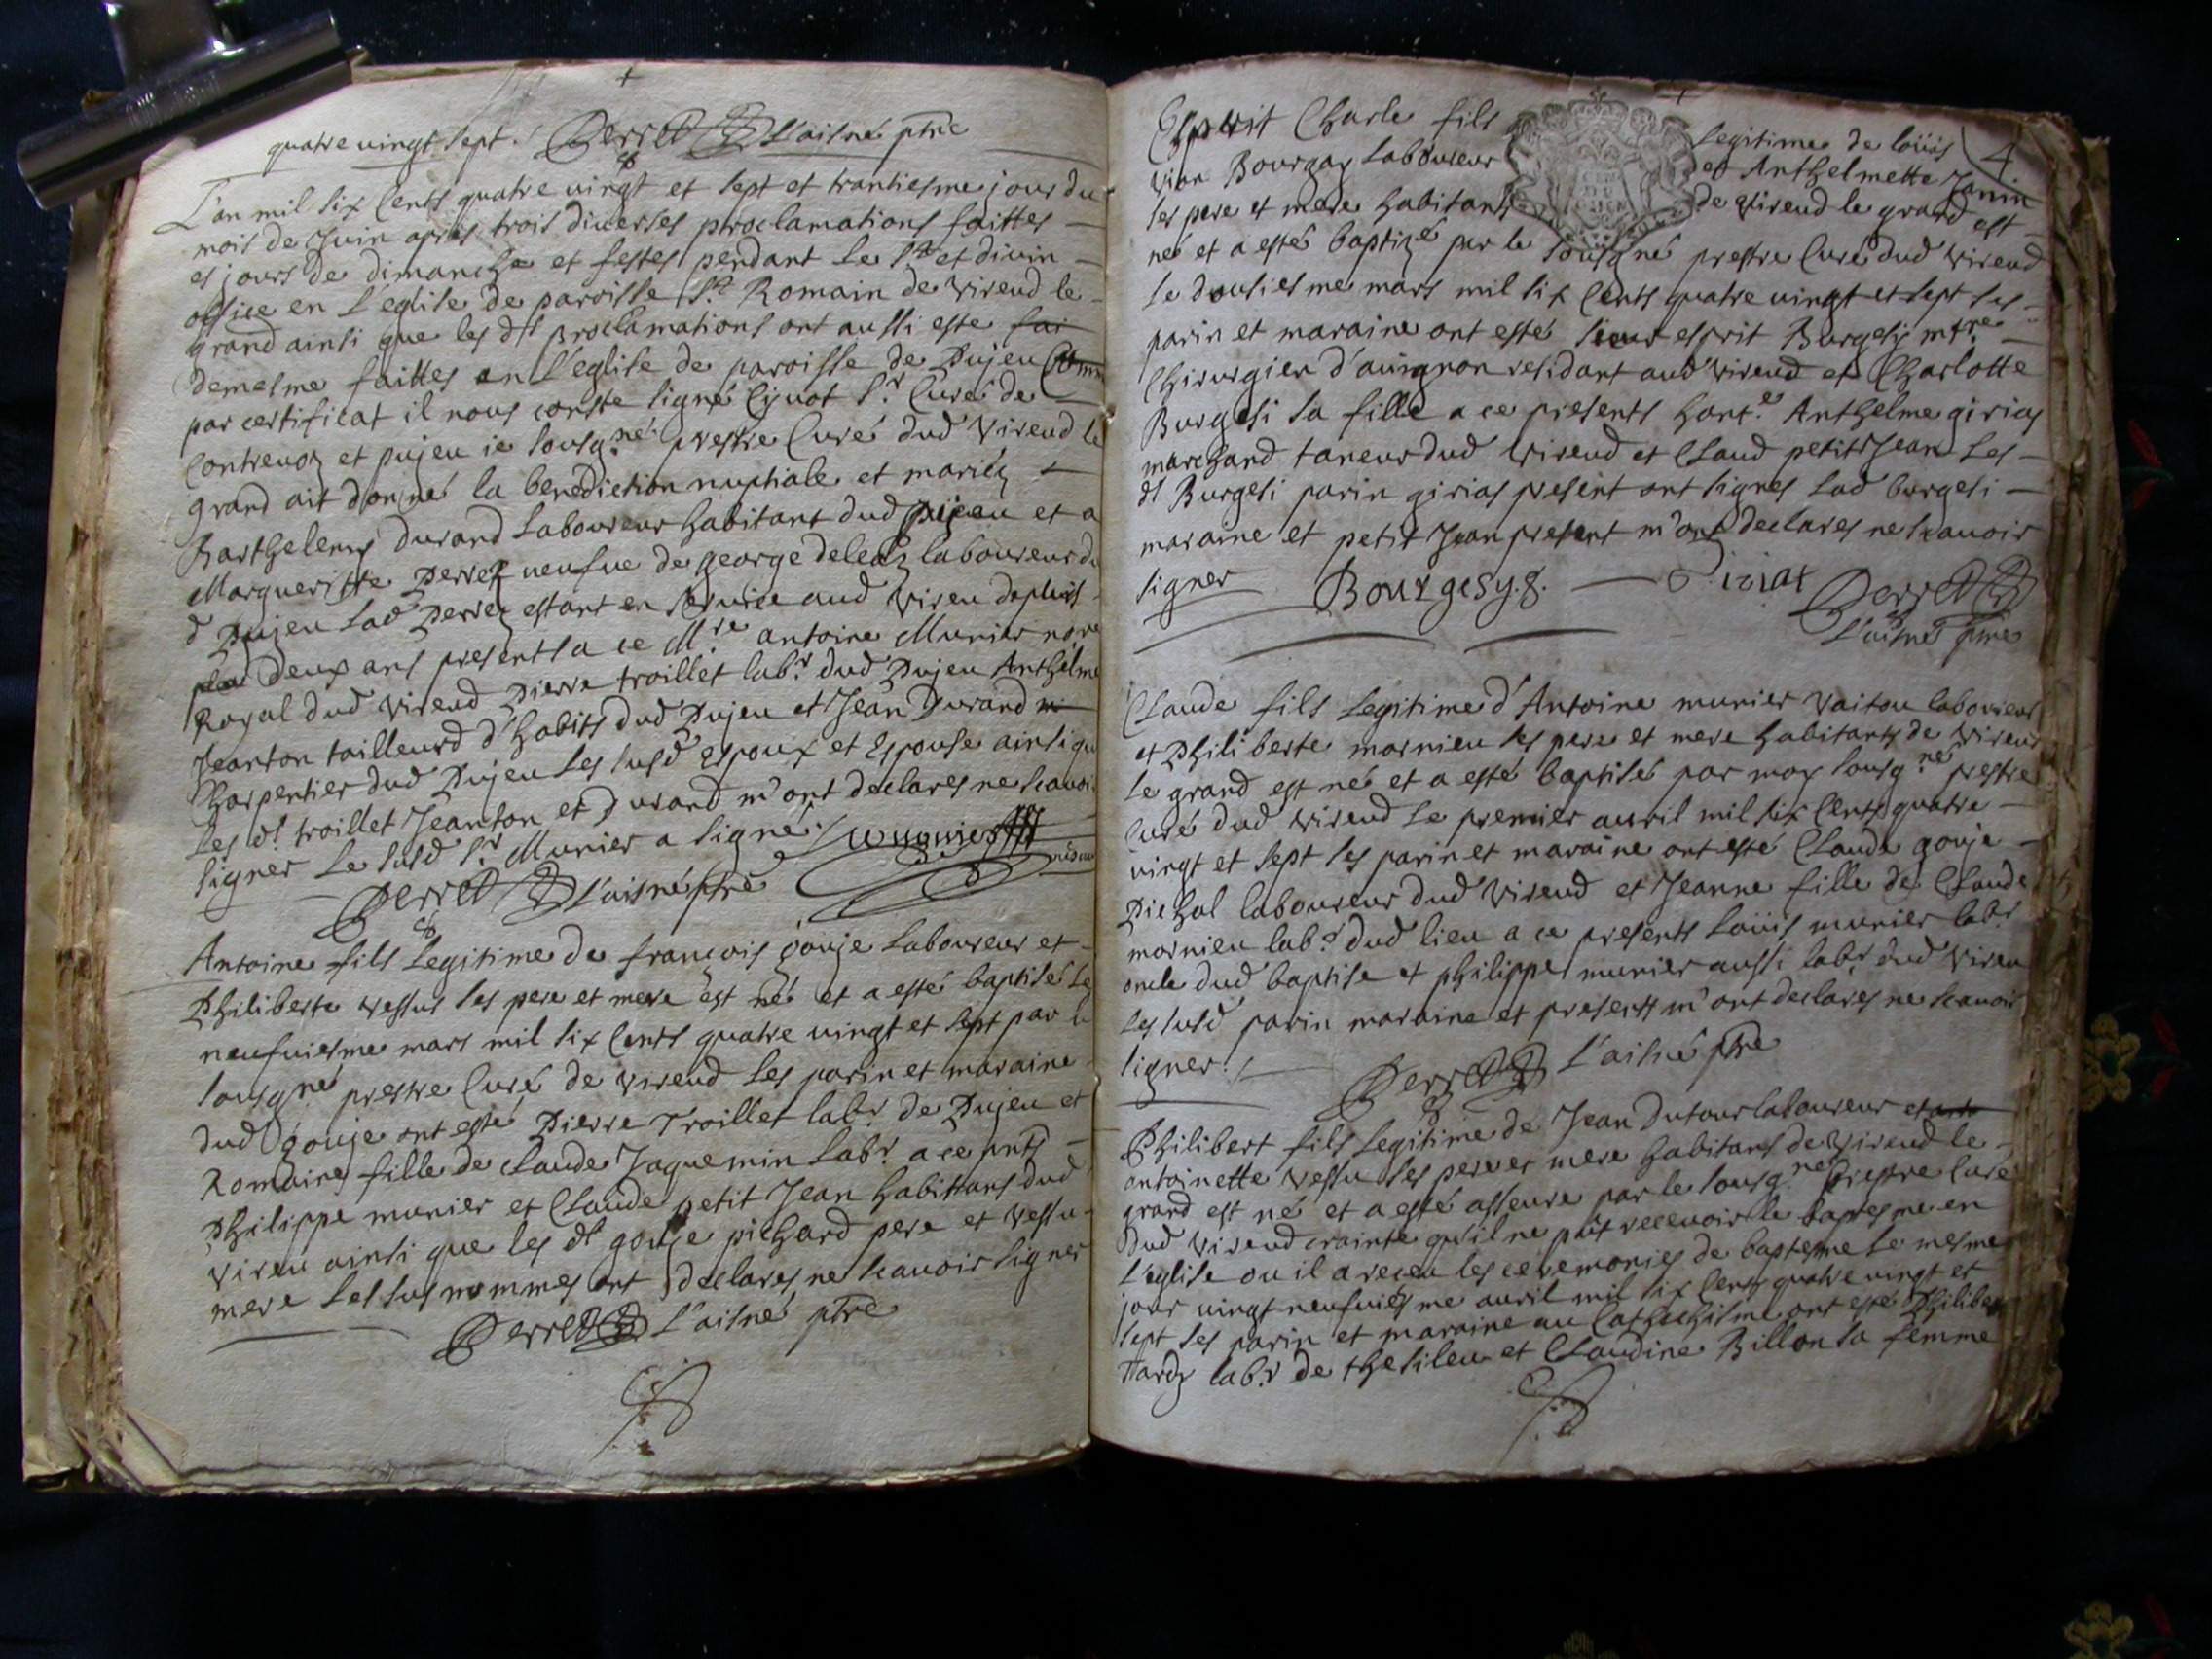 quatre vingt sept. Perret L'aisné ptre
L'an mil six Cents quatre vingt et sept et trantiesme jour du
mois de Juin apres trois diverses proclamations faittes
es jours de dimanche et festes pendant le St et divin
office en L'eglise de paroisse St Romain de Virend le
grand ainsi que les dt proclamations ont aussi este fai
demesme faittes en L'eglise de paroisse de Pujeu Comm
par certificat il nous conste signé Sr Curé de
Contrevoz et pujeu ie sousgné prestre Curé dud Virend le
grand ait donné la benediction nuptiale et mariéz
Barthelemy Durand Laboureur habitant dud pujeu et a
Margueritte Perret neufue de george laboureur du
d Pujeu Lad Perret estant en service aud Vireu depluis
deux ans presents a ce Mre antoine Munier nore
Royal dud Virend Pierre troillet labr dud Pujeu Anthelme
Jeanton tailleurd d'habits dud Pujeu et Jean Durand
Charpentier dud Pujeu Les susd Espoux et Espouse ainsi qu
Les dt troillet Jeanton et Durand m'ont declares ne scauoir
signer Le susd Sr Munier a signé. Mugnier
Perret L'aisné ptre
Antoine fils Legitime de françois gouje Laboureur et
Philiberte Vessus ses pere et mere est né et a esté baptisé Le
neufuiesme mars mil six Cents quatre vingt et sept par le
sousgné prestre Curé de Virend Les parin et maraine
dud gouje ont esté Pierre Troillet labr de Pujeu et
Romaine fille de Claude Jaquemin Labr a ce pnts
Philippe munier et Claude petit Jean habittans dud
Vireu ainsi que les dt gouje pichard pere et Vessu
mere Les susnommes ont declares ne scauoir signer
Perret L'aisné ptre
Esprit Charle fils legitime de loüis 4
Vion Bourgay Laboureur et Anthelmette Janin
ses pere et mere habitants de Virend le grand est
né et a esté baptizé par le sousgné prestre Curé dud Virend
Le dousiesme mars mil six Cents quatre vingt et sept ses
parin et maraine ont esté sieur esprit Burgesis mtre
Chirurgien d'auignon residant aud Virend et Charlotte
Burgesi sa fille a ce presents honte Anthelme girias
marchand taneur dud Virend et Claud petit Jean Les
dt Burgesi parin girias present ont signes Lad burgesi
maraine et petit Jean present m'ont declares ne scauoir
signer Bourgesy.g. Giriat Perret
L'aisné ptre
Claude fils Legitime d'Antoine munier Vaitou laboureur
et Philiberte mornieu ses pere et mere habitants de Vireud
le grand est né et a esté baptisé par moy sousgné prestre
Curé dud Virend Le premier auril mil six Cents quatre
vingt et sept ses parin et maraine ont esté Claude gouje
Pichal laboureur dud Virend et Jeanne fille de Claude
mornieu labr dud lieu a ce presents Loüis munier labr
oncle dud baptise et philippe munier aussi labr dud Vireu
Les susd parin maraine et presents m'ont declares ne scauoir
signer.
Perret L'aisné ptre
Philibert fils Legitime de Jean Dutour laboureur et anto
antoinette Vessu ses pere et mere habitans de Virend le
grand est né et a esté asseure par le sousgné Prestre Curé
dud Virend crainte qu'il ne pût receuoir le baptesme en
L'eglise ou il a receu les ceremonies de baptesme Le mesme
jour vingt neufuiesme auril mil six Cents quatre vingt et
sept ses parin et maraine au Cathechisme ont esté Philibert
Hardy labr de et Claudine Billon sa femme